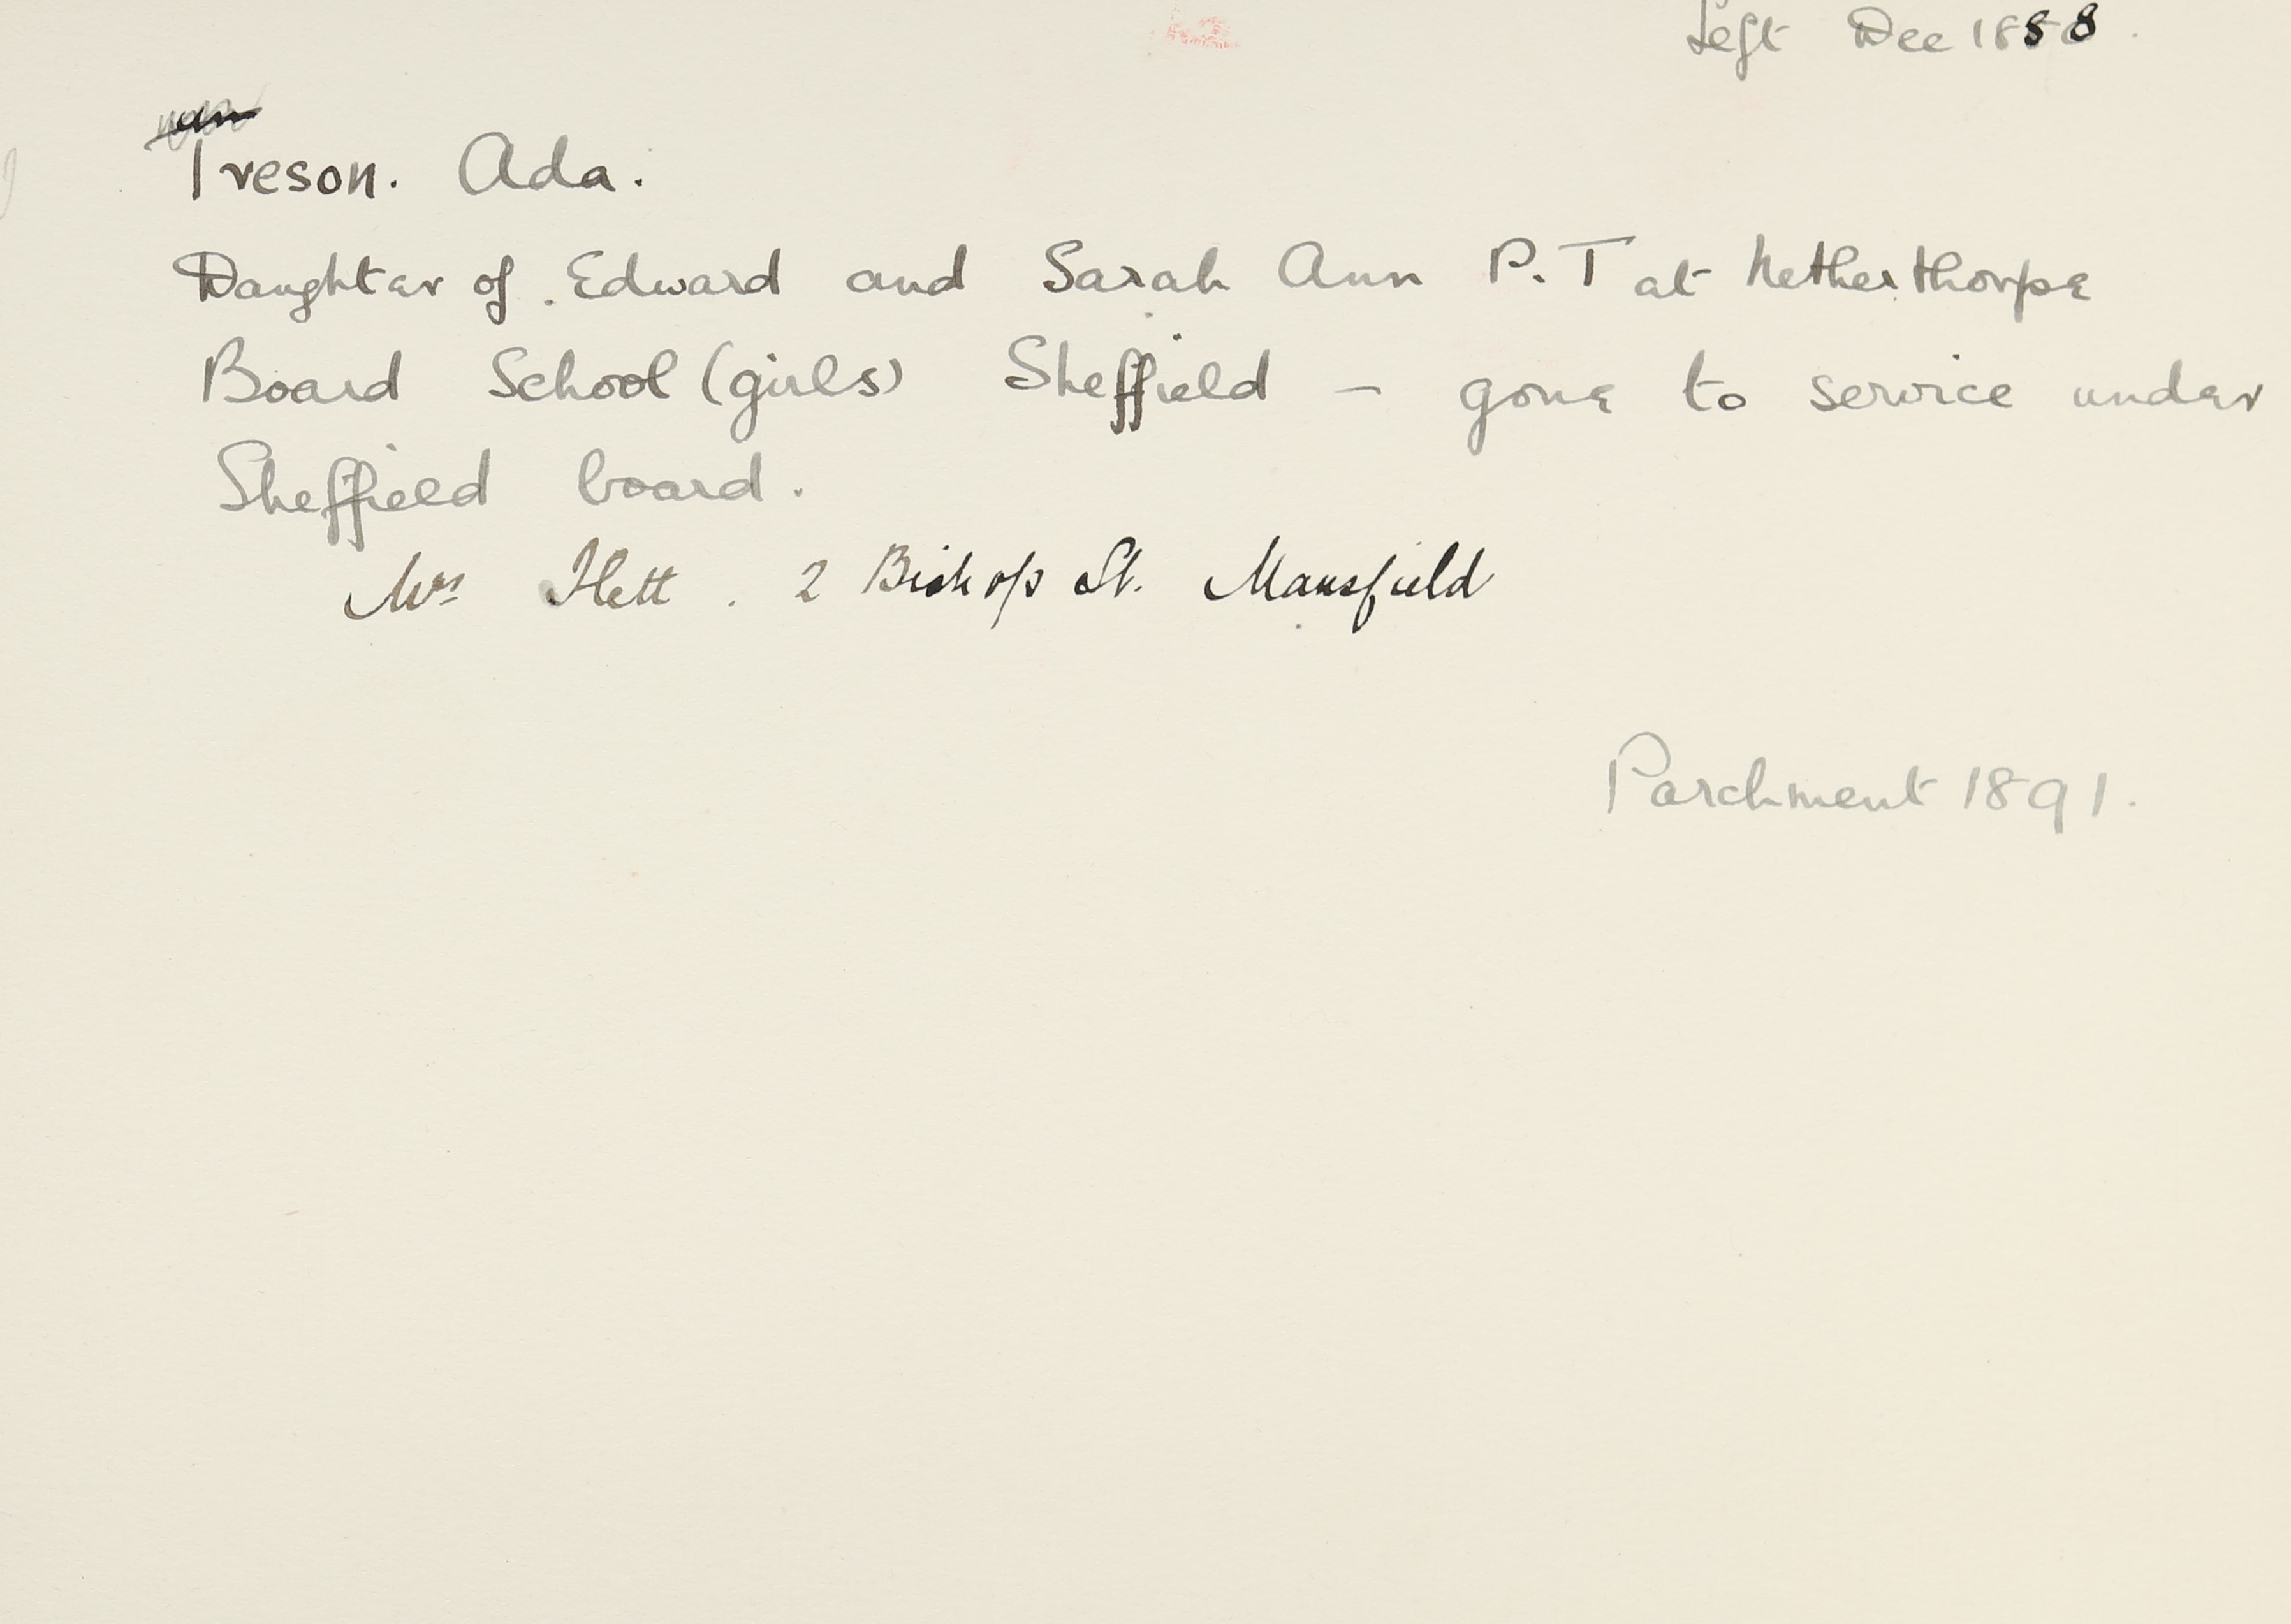 Left Dec 1888.
Ireson. Ada.
Daughter of Edward and Sarah Ann P.T at Netherthorpe
Board School (girls) Sheffield - gone to service under
Sheffield board.
Mrs Hett. 2 Bishop St. Mansfield
Parchment 1891.